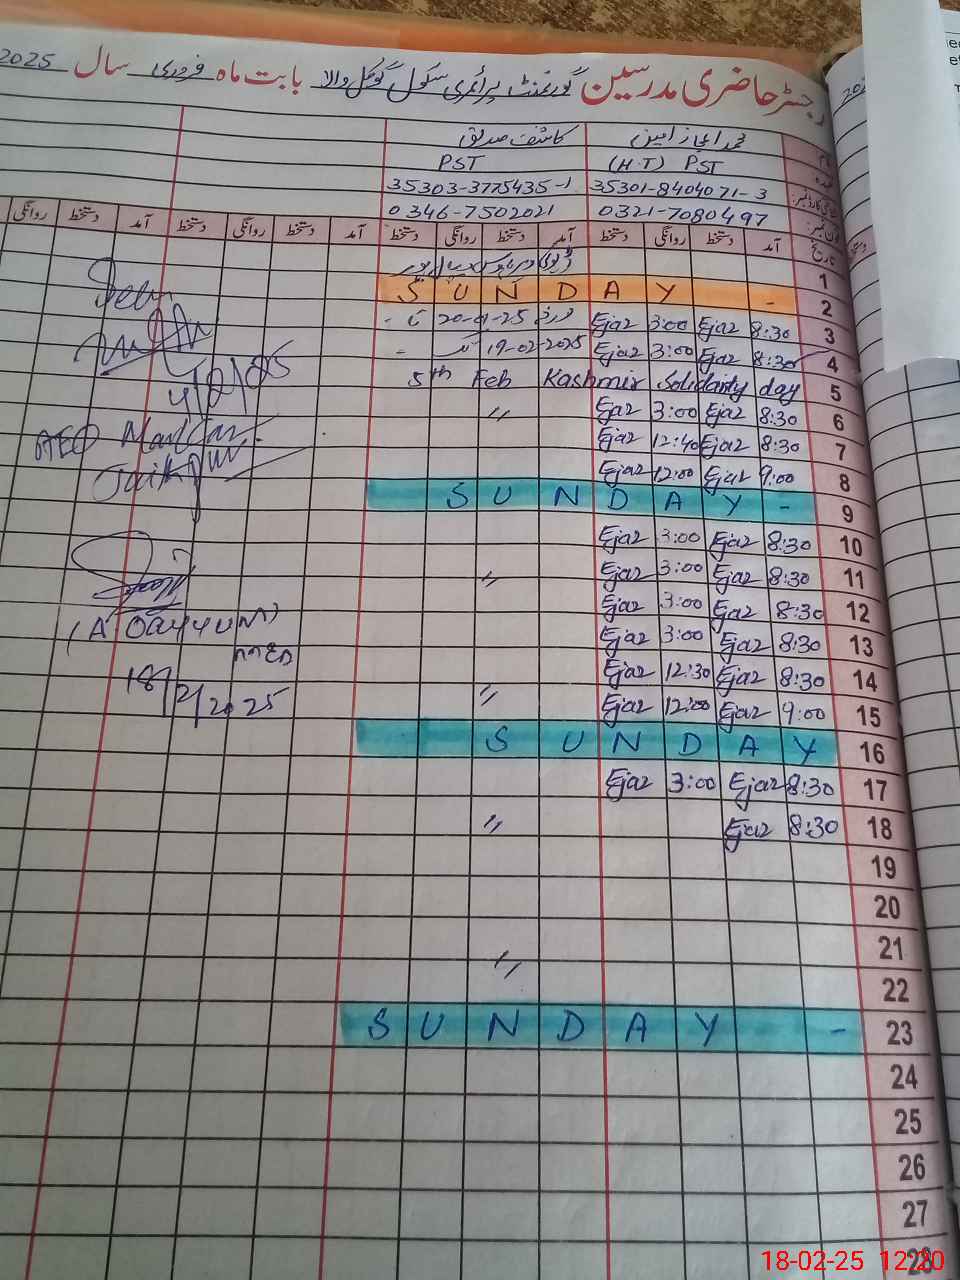 رجسٹر حاضری مدرسین گورنمنٹ پرائمری سکول گوگل والا بابت ماہ فروری سال 2025
محمد اعجاز امین کاشف صدیق
(H.T) PST PST
35301-8404071-3 35303-3775435-1
0321-7080497 0346-7502021
تاریخ آمد دستخط روانگی دستخط آمد دستخط روانگی دستخط آمد دستخط روانگی دستخط آمد دستخط روانگی
1
2 SUNDAY -
3 8:30 Ejaz 3:00 Ejaz 20-01-25
4 8:30 Ejaz 3:00 Ejaz 19-02-2025 تک
5 5th Feb Kashmir Solidarity day
6 8:30 Ejaz 3:00 Ejaz 〃
7 8:30 Ejaz 12:40 Ejaz
8 9:00 Ejaz 12:00 Ejaz
9 SUNDAY -
10 8:30 Ejaz 3:00 Ejaz
11 8:30 Ejaz 3:00 Ejaz 〃
12 8:30 Ejaz 3:00 Ejaz
13 8:30 Ejaz 3:00 Ejaz
14 8:30 Ejaz 12:30 Ejaz 〃
15 9:00 Ejaz 12:00 Ejaz
16 SUNDAY
17 8:30 Ejaz 3:00 Ejaz
18 8:30 Ejaz 〃
19
20
21 〃
22
23 SUNDAY -
24
25
26
27
28
AEO
(A Qayyum)
18/2/2025
18-02-25 12:20